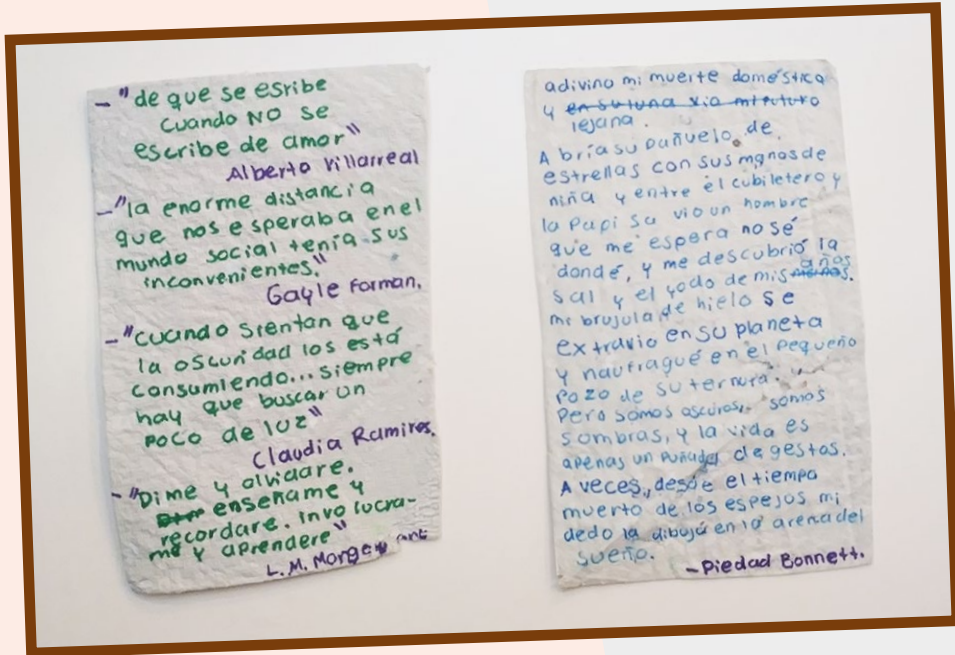 - "de que se esribe
cuando NO se
escribe de amor"
Alberto Villarreal
- "la enorme distancia
que nos esperaba en el
mundo social tenía sus
inconvenientes."
Gayle Forman.
- "cuando sientan que
la oscuridad los está
consumiendo... siempre
hay que buscar un
poco de luz"
Claudia Ramirez.
- "Dime y olvidare.
enseñame y
recordare. involucra-
me y aprendere"
L.M. Morgen
adivino mi muerte doméstica
y en su luna via mi futuro
lejana.
Abría su pañuelo de
estrellas con sus manos de
niña y entre el cubiletero y
la Papi Sa vio un hombre
que me espera no sé
donde, y me descubrió la
sal y el yodo de mis años.
mi brujula de hielo se
extravio en su planeta
y naufragué en el pequeño
pozo de su ternura.
Pero somos oscuros, somos
sombras, y la vida es
apenas un puñado de gestos.
A veces, desde el tiempo
muerto de los espejos mi
dedo la dibuja en la arena del
sueño.
-Piedad Bonnett.